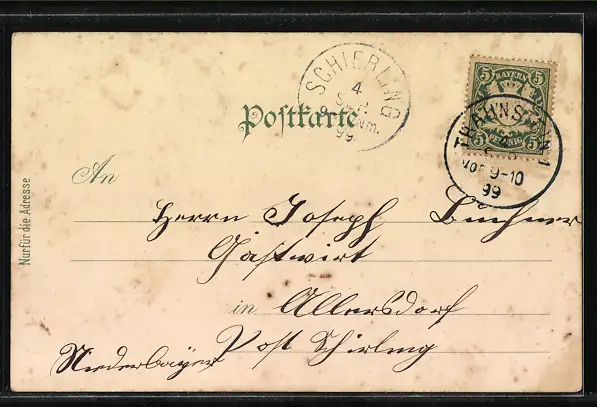 SCHIERLING
4
SEP.
Nm.
99
5 BAYERN 5
5 PFENNIG 5
TRAUNSTEIN 1
Vor 9-10
99
Postkarte
Nur für die Adresse
An
Herrn Joseph Buchner
Gastwirt
in Allersdorf
Post Schirling
Niederbayer